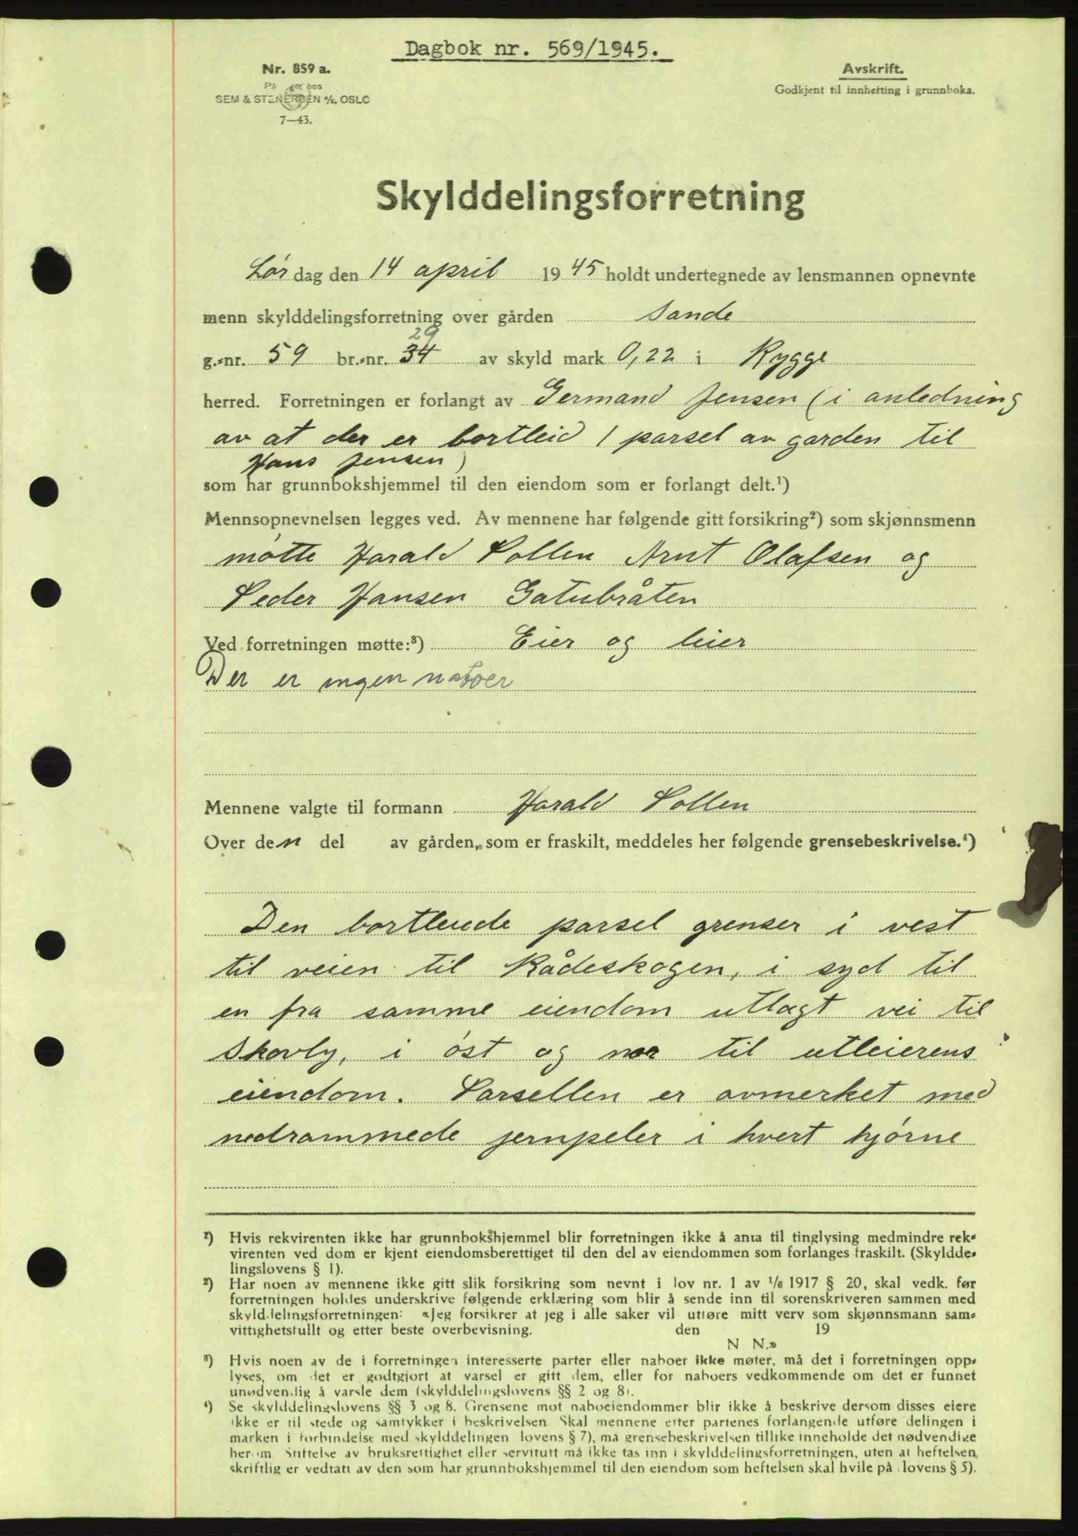 Dagbok nr. 569/1945.
Nr. 859 a.
På lager hos
SEM & STENERSEN A/S, OSLO
7—43.
Avskrift.
Godkjent til innhefting i grunnboka.
Skylddelingsforretning
Lør dag den 14 april 1945 holdt undertegnede av lensmannen opnevnte
menn skylddelingsforretning over gården Sande
29
g.-nr. 59 br.-nr. 34 av skyld mark 0,22 i Rygge
herred. Forretningen er forlangt av Germand Jensen (i anledning
av at der er bortleid 1 parsel av garden til
Hans Jensen)
som har grunnbokshjemmel til den eiendom som er forlangt delt.¹)
Mennsopnevnelsen legges ved. Av mennene har følgende gitt forsikring²) som skjønnsmenn
møtte Harald Sollen Arnt Olafsen og
Peder Hansen Gatubråten
Ved forretningen møtte:³) Eier og leier
Der er ingen naboer
Mennene valgte til formann Harald Sollen
Over den del av gården, som er fraskilt, meddeles her følgende grensebeskrivelse.⁴)
Den bortleiede parsel grenser i vest
til veien til Rådeskogen, i syd til
en fra samme eiendom utlagt vei til
Skovly, i øst og nor til utleierens
eiendom. Parsellen er avmerket med
nedrammede jernpeler i hvert hjørne
¹) Hvis rekvirenten ikke har grunnbokshjemmel blir forretningen ikke å anta til tinglysing medmindre rek-
virenten ved dom er kjent eiendomsberettiget til den del av eiendommen som forlanges fraskilt. (Skyldde-
lingslovens § 1).
²) Har noen av mennene ikke gitt slik forsikring som nevnt i lov nr. 1 av 1/6 1917 § 20, skal vedk. før
forretningen holdes underskrive følgende erklæring som blir å sende inn til sorenskriveren sammen med
skylddelingsforretningen: «Jeg forsikrer at jeg i alle saker vil utføre mitt verv som skjønnsmann sam-
vittighetsfullt og etter beste overbevisning. den 19
N N.»
³) Hvis noen av de i forretningen interesserte parter eller naboer ikke møter, må det i forretningen opp-
lyses, om det er godtgjort at varsel er gitt dem, eller for naboers vedkommende om det er funnet
unødvendig å varsle dem (skylddelingslovens §§ 2 og 8).
⁴) Se skylddelingslovens §§ 3 og 8. Grensene mot naboeiendommer blir ikke å beskrive dersom disses eiere
ikke er til stede og samtykker i beskrivelsen. Skal mennene etter partenes forlangende utføre delingen i
marken i forbindelse med skylddelingen (lovens § 7), må grensebeskrivelsen tillike inneholde det nødvendige
herom. Stiftelse av bruksrettighet eller servitutt må ikke tas inn i skylddelingsforretningen, uten at heftelsen
skriftlig er vedtatt av den som har grunnbokshjemmel til den eiendom som heftelsen skal hvile på (lovens § 5).